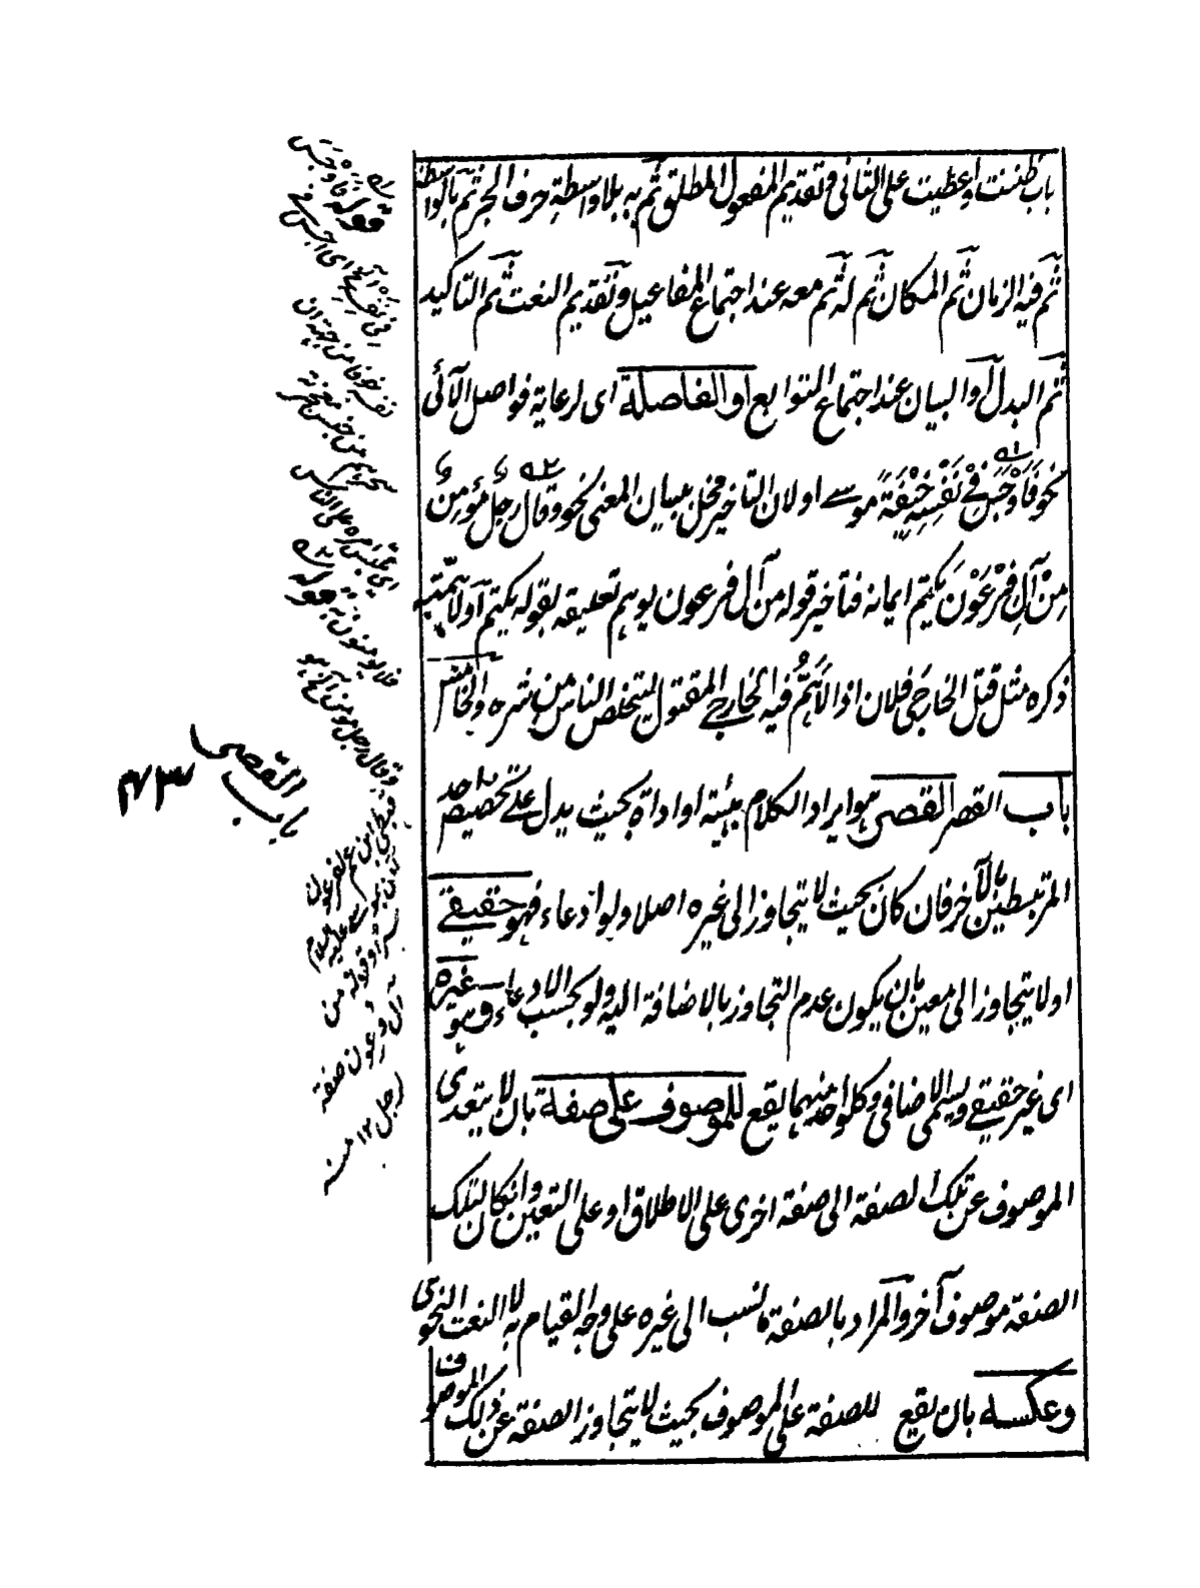 باب ظننت واعطيت على الثانى وتقديم المفعول المطلق ثم به بلا واسطة حرف الجر ثم بالواسطة
ثم فيه الزمان ثم المكان ثم له ثم معه عند اجتماع المفاعيل وتقديم النعت ثم التاكيد
ثم البدل او البيان عند اجتماع التوابع او الفاصلة اى لرعاية فواصل الآئى
نحو فَاَوْجَسَ فِى نَفْسِهٖ خِيْفَةً موسے او لان التاخير مخل ببيان المعنى نحو وقال رجل مؤمن
مِنْ آلِ فِرْعَوْنَ يكتم ايمانه فتاخير قوله من آل فرعون يوهم تعليقه بقوله يكتم اولاهمية
ذكره مثل قتل الخارجى فلان اذ الاهمّ فيه الخارجے المقتول ليتخلص الناس من شره والخامس
باب القصر القصر هو ايراد الكلام بهيئة او اداة بحيث يدل على تخصيص احد
المرتبطين بالآخر فان كان بحيث لا يتجاوز الى غيره اصلا ولو ادعاء فهو حقيقے
او لا يتجاوز الى معين بان يكون عدم التجاوز بالاضافة اليه ولو بحسب الادعاء فهو غيره
اى غير حقيقے ويسمى الاضافى وكل واحد منهما يقع للموصوف على صفة بان لا يتعدى
الموصوف عن تلك الصفة الى صفة اخرى على الاطلاق او على التعيين وان كان لتلك
الصفة موصوف آخر والمراد بالصفة ما نسب الى غيره على وجه القيام به لا النعت النحوى
وعكسه بان يقع للصفة على الموصوف بحيث لا يتجاوز الصفة عن ذلك الموصوف
قوله فاوجس
فى نفسه الخ اى اجس فى
نفسه خوفا من جهة ان
سحرهم من جنس معجزته
قوله
وقال رجل مؤمن الخ هو
قبطى ابن عم لفرعون
من
آل فرعون صفة
رجل ١٢ منه
باب القصر